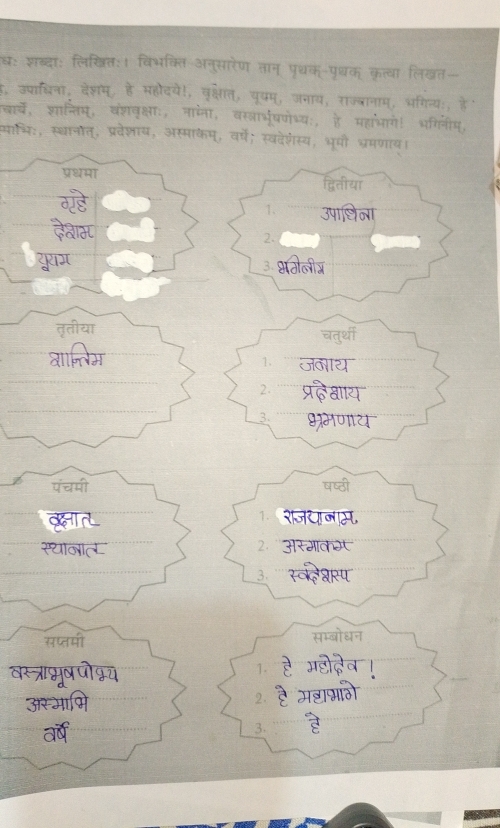 शब्दाः लिखितः। विभक्ति अनुसारेण तान् पृथक्-पृथक् कृत्वा लिखत–
उपाधिना, देशम्, हे महोदये!, वृक्षात्, यूयम्, जनाय, राज्यानाम्, भगिन्यः, हे
शान्तिम्, वंशवृक्षाः, नाम्ना, वस्त्राभूषणेभ्यः, हे महाभागे! भगिनीम्,
स्थानात्, प्रदेशाय, अस्माकम्, वर्षे, स्वदेशस्य, भूमौ भ्रमणाय।
प्रथमा
गृहे
देशम
यूयम
द्वितीया
1. उपाधिना
2.
3. भगिनीम
तृतीया
शान्तिम
चतुर्थी
1. जनाय
2. प्रदेशाय
3. भ्रमणाय
पंचमी
वृक्षात
स्थानात
षष्ठी
1. राजयानाम
2. अस्माकम
3. स्वदेशस्य
सप्तमी
वस्त्राभूषणेभ्य
अस्माभि
वर्षे
सम्बोधन
1. हे महोदेव!
2. हे महाभागे
3. हे